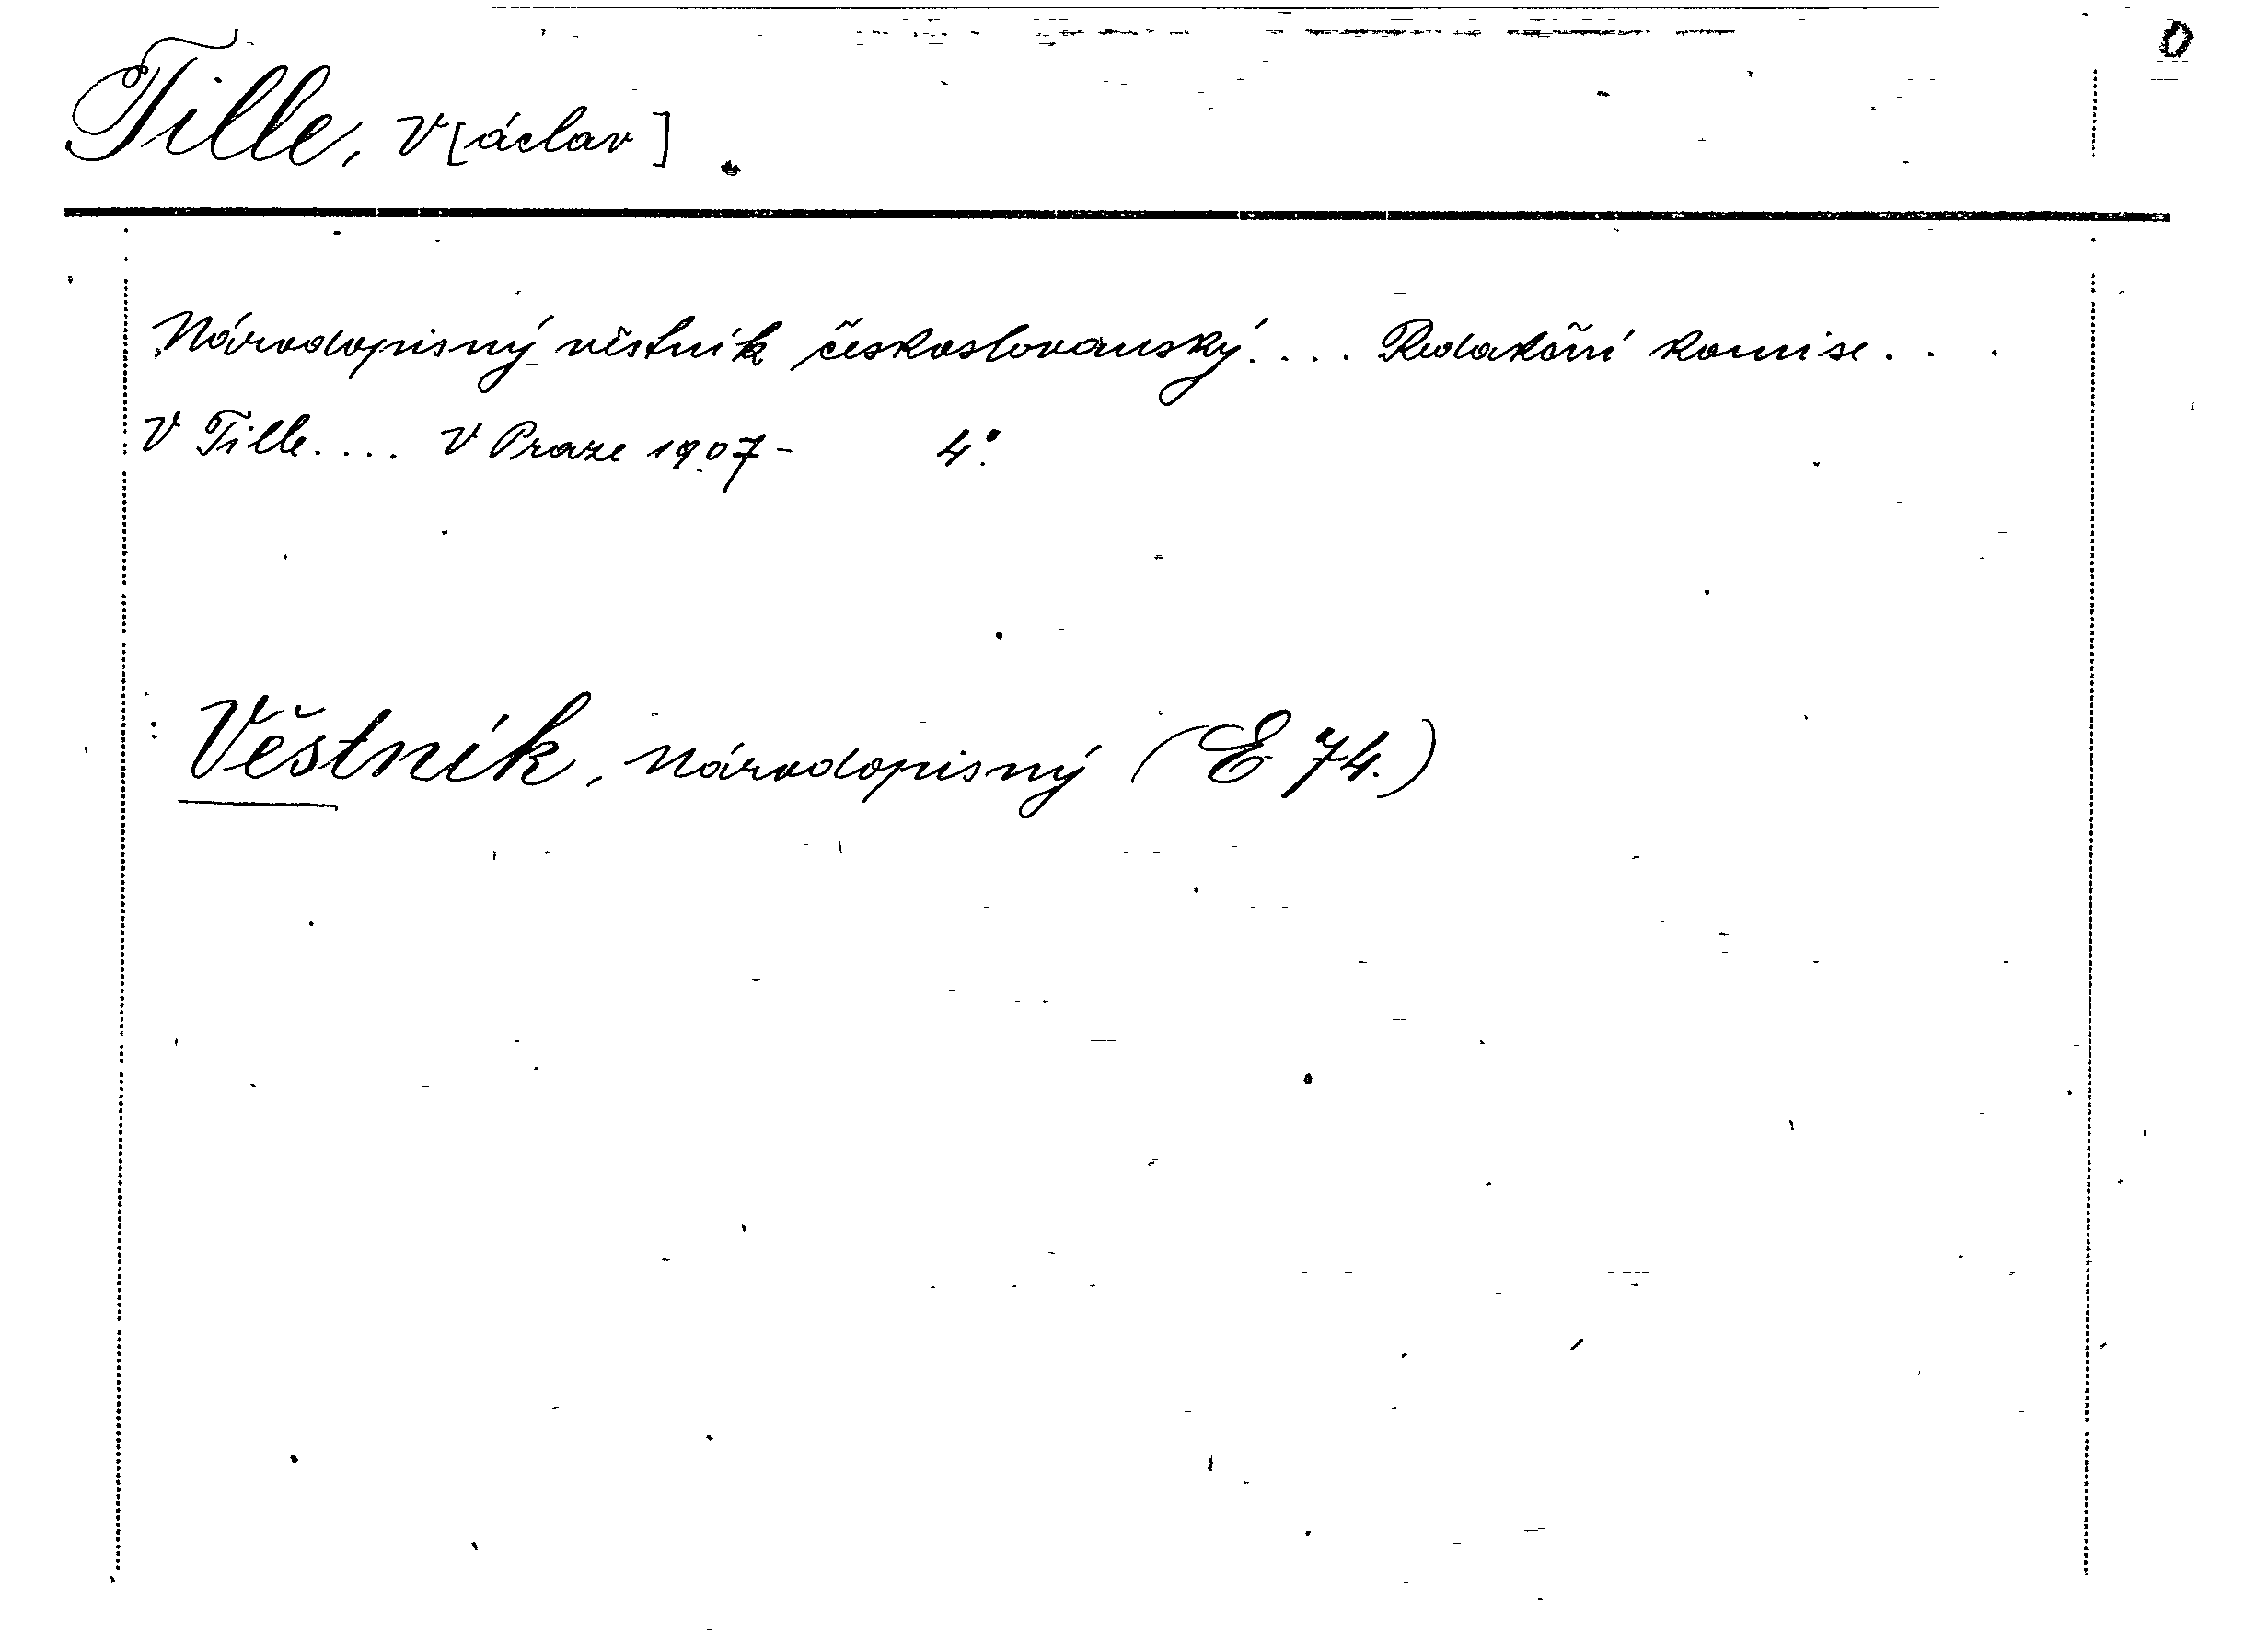 Tille, V[áclav]
Národopisný věstník českoslovanský.... Redakční komise...
V Tille.... V Praze 1907- 4°.
Věstník, Národopisný (E 74.)